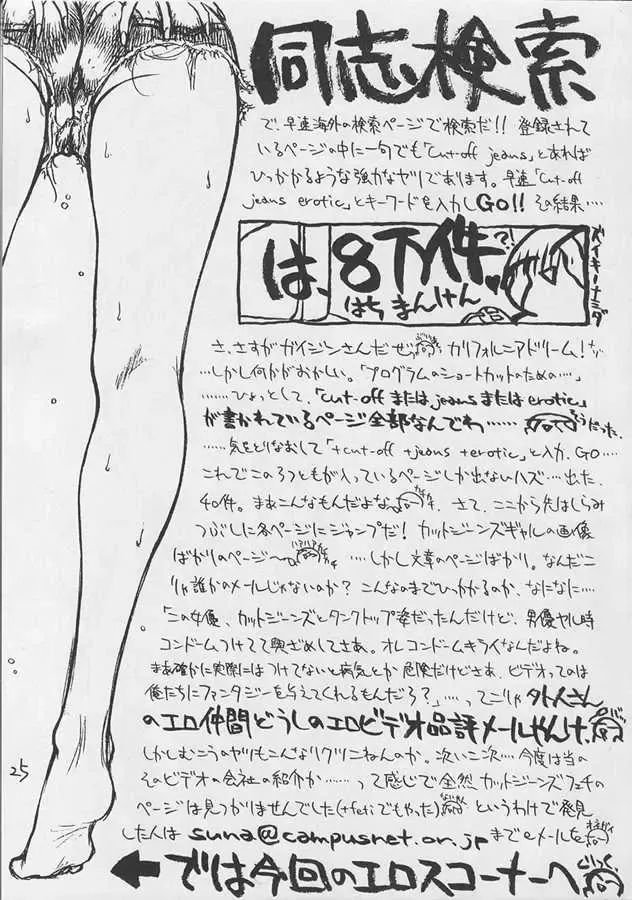 同志検索
で、早速海外の検索ページで検索だ!! 登録されて
いるページの中に一句でも「cut-off jeans」とあれば
ひっかかるような強力なヤツであります。早速「cut-off
jeans erotic」とキーワードを入力しGO!! その結果‥‥
は、8万件
?!
はちまんけん
さ、さすがガイジンさんだぜ カリフォルニアドリーム!
‥‥しかし何かがおかしい。「プログラムのショートカットのための‥‥」
‥‥‥ひょっとして、「cut-off または jeans または erotic」
が書かれているページ全部なんでわ‥‥‥ そうだった
‥‥‥気をとりなおして「+cut-off +jeans +erotic」と入力、GO‥‥
これでこの3つともが入っているページしか出ないハズ‥‥出た、
40件。まあこんなもんだよな さて、ここから先はしらみ
つぶしに各ページにジャンプだ! カットジーンズギャルの画像
ばかりのページ〜 ‥‥しかし文章のページばかり。なんだこ
りゃ誰かのメールじゃないのか? こんなのまでひっかかるのか、なになに‥‥
「この女優、カットジーンズとタンクトップ姿だったんだけど、男優ヤル時
コンドームつけてて興ざめしてさあ。オレコンドームキライなんだよね。
まあ確かに実際にはつけてないと病気とか危険だけどさあ、ビデオってのは
俺たちにファンタジーを与えてくれるもんだろ?」‥‥ってこりゃ外人さん
のエロ仲間どうしのエロビデオ品評メールやんけ
しかしむこうのヤツもこんなノリツリこねんのか。次いこ次‥‥今度は当の
そのビデオの会社の紹介か‥‥‥って感じで全然カットジーンズフェチの
ページは見つかりませんでした(+fetiでもやった) というわけで発見
した人は suna@campusnet.or.jp までeメールを
25
←では今回のエロスコーナーへ